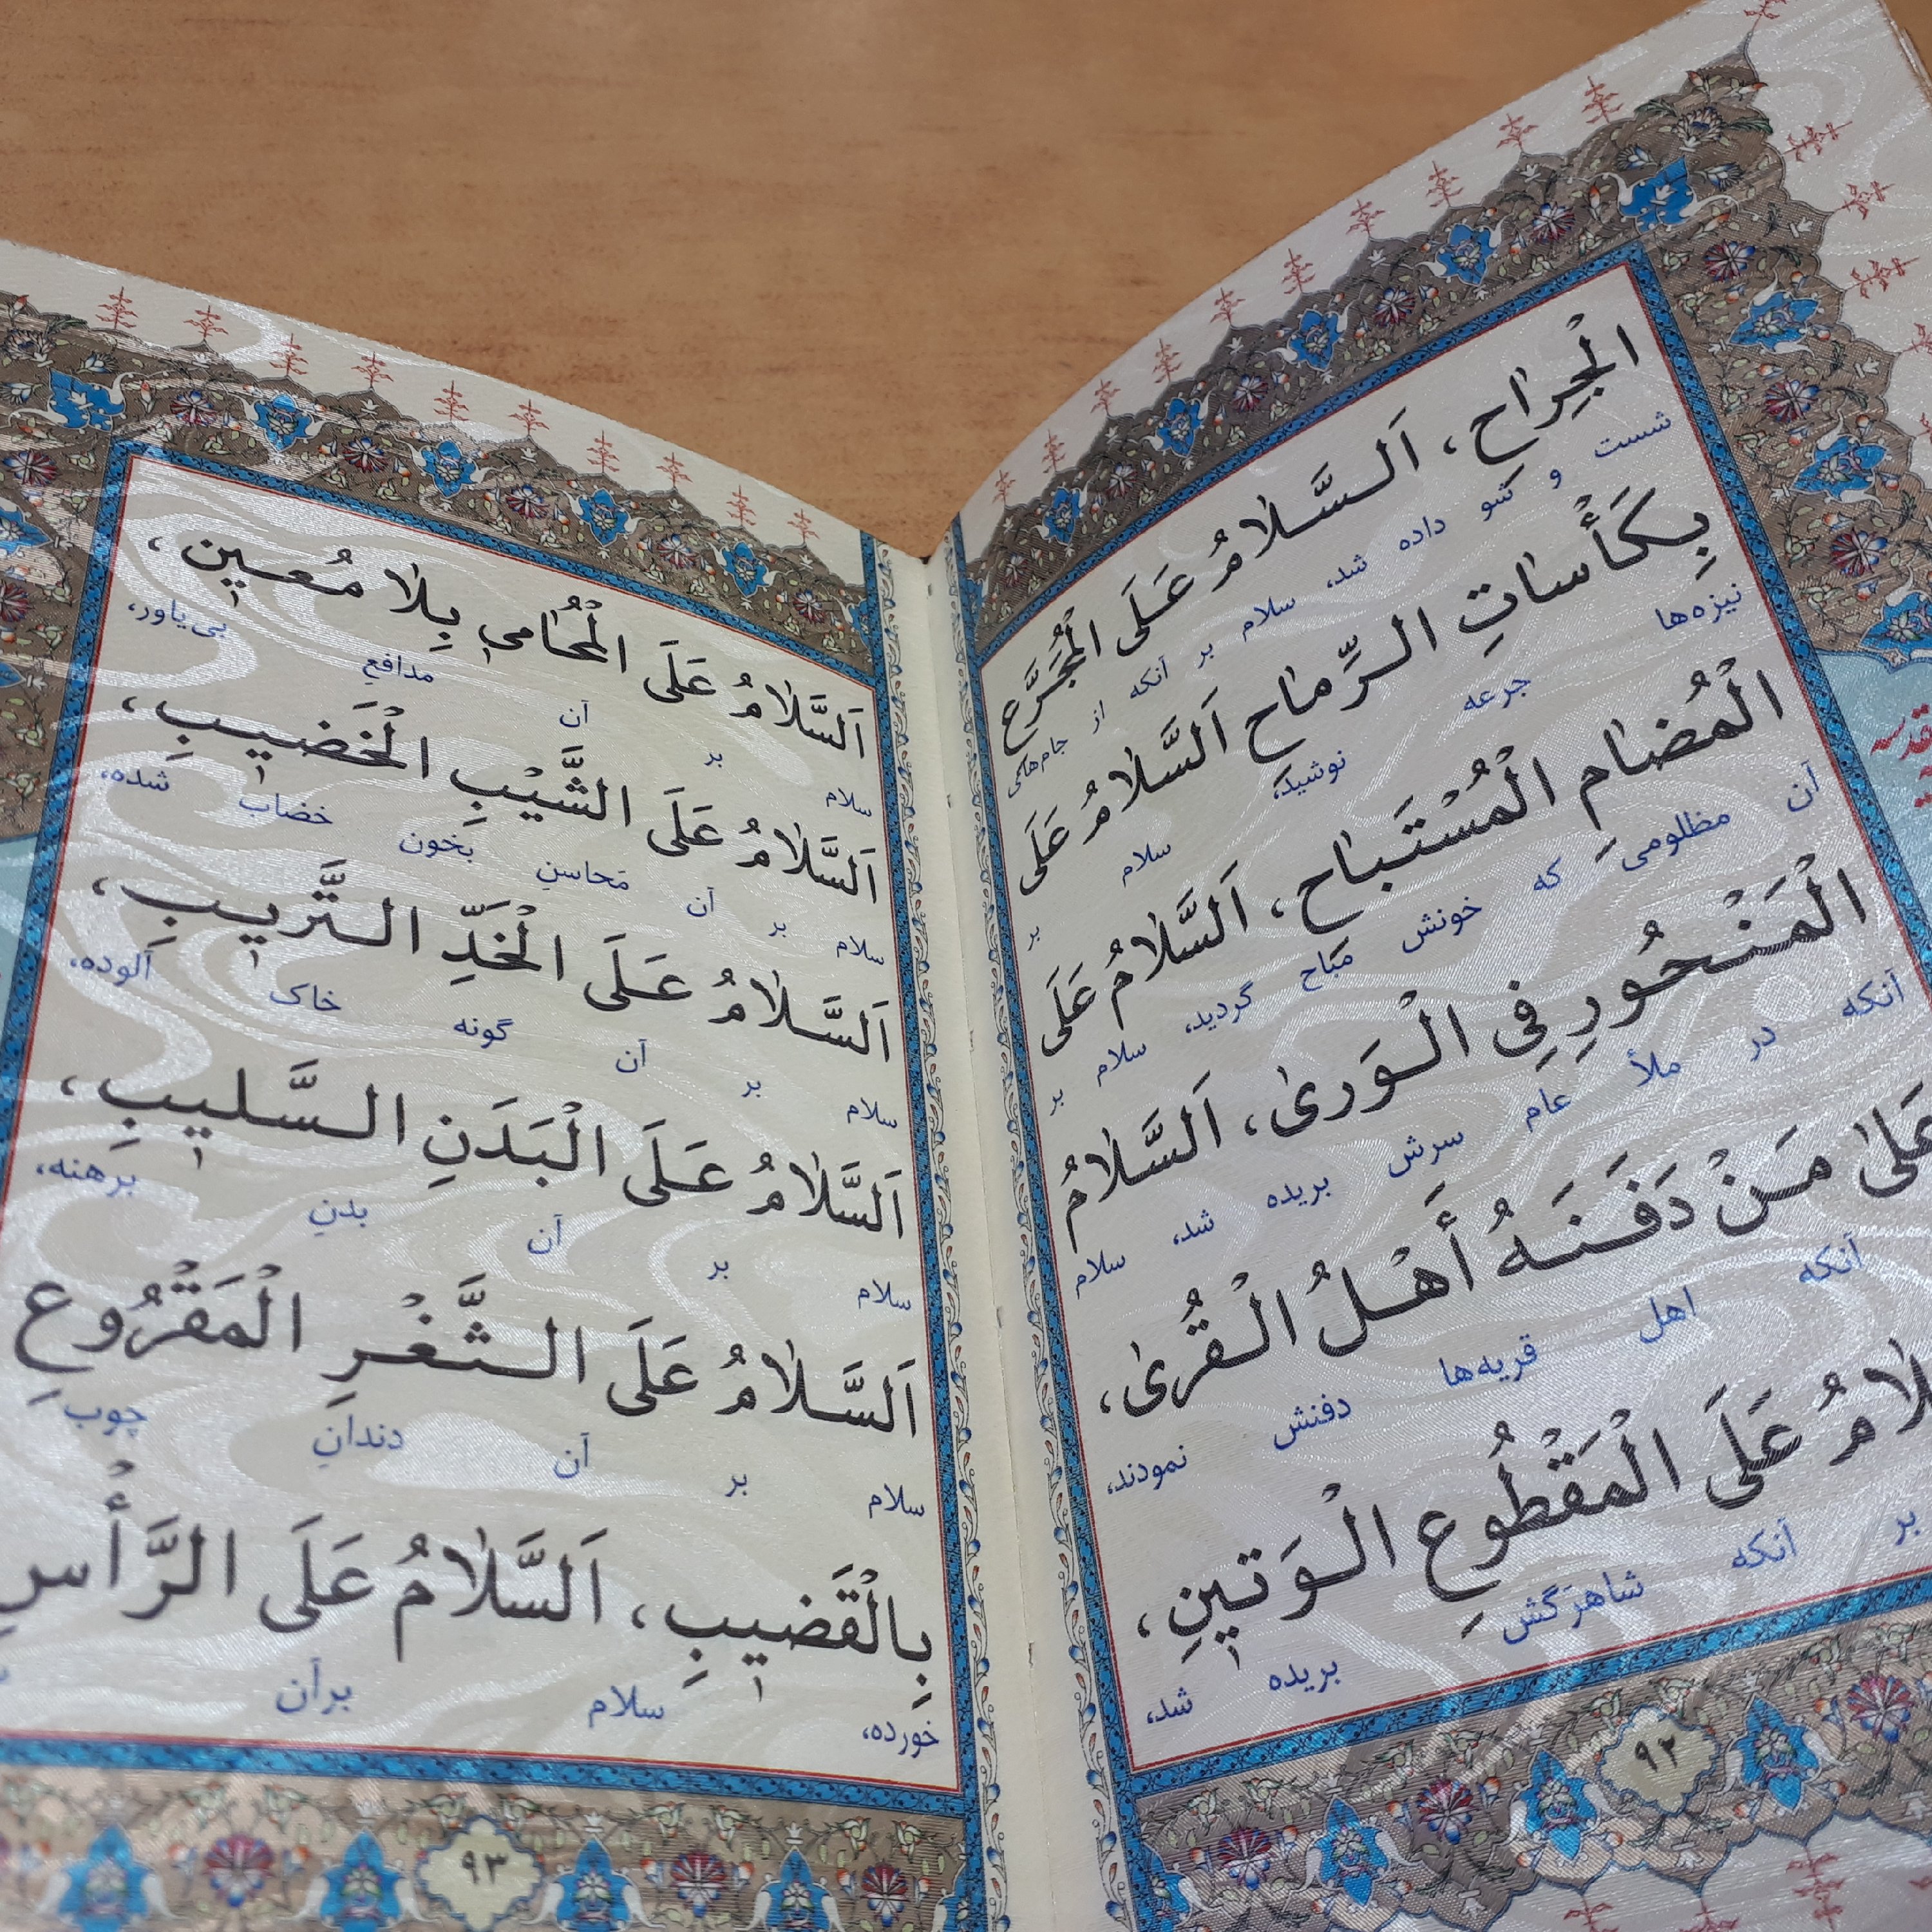 الْجِرٰاحِ، اَلسَّلٰامُ عَلَى الْمُجَرَّعِ
شست و شو داده شد، سلام بر آنکه از جام‌های
بِكَأْسٰاتِ الرِّمٰاحِ اَلسَّلٰامُ عَلَى
نیزه‌ها جرعه نوشید، سلام بر
الْمُضٰامِ الْمُسْتَبٰاحِ، اَلسَّلٰامُ عَلَى
آن مظلومی که خونش مباح گردید، سلام بر
الْمَنْحُورِ فِي الْوَرىٰ، اَلسَّلٰامُ
آنکه در ملأ عام سرش بریده شد، سلام
عَلىٰ مَنْ دَفَنَهُ أَهْلُ الْقُرىٰ،
آنکه اهل قریه‌ها دفنش نمودند،
لٰامُ عَلَى الْمَقْطُوعِ الْوَتينِ،
بر آنکه شاهرَگش بریده شد،
۹۲
اَلسَّلٰامُ عَلَى الْمُحٰامي بِلٰا مُعينٍ،
سلام بر آن مدافعِ بی‌یاور،
اَلسَّلٰامُ عَلَى الشَّيْبِ الْخَضيبِ،
سلام بر آن مَحاسنِ بخون خضاب شده،
اَلسَّلٰامُ عَلَى الْخَدِّ التَّريبِ،
سلام بر آن گونه خاک آلوده،
اَلسَّلٰامُ عَلَى الْبَدَنِ السَّليبِ،
سلام بر آن بدنِ برهنه،
اَلسَّلٰامُ عَلَى الثَّغْرِ الْمَقْرُوعِ
سلام بر آن دندانِ چوب
بِالْقَضيبِ، اَلسَّلٰامُ عَلَى الرَّأْسِ
خورده، سلام برآن
۹۳